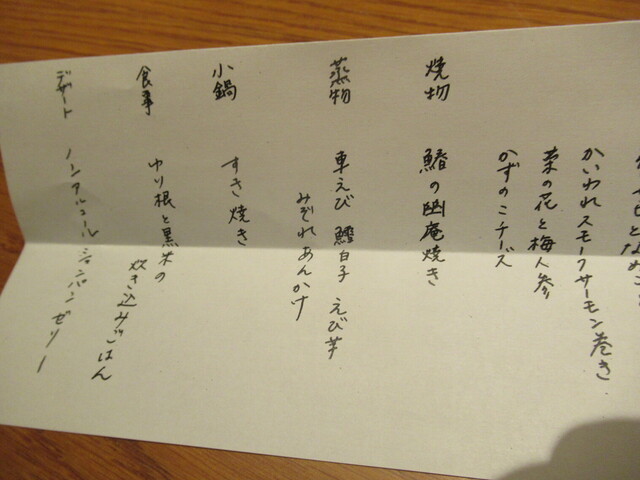 かいわれスモークサーモン巻き
菜の花と梅人参
かずのこチーズ
焼物 鰆の幽庵焼き
蒸物 車えび 鱈白子 えび芋
みぞれあんかけ
小鍋 すき焼き
食事 ゆり根と黒米の
炊き込みごはん
デザート ノンアルコールシャンパンゼリー